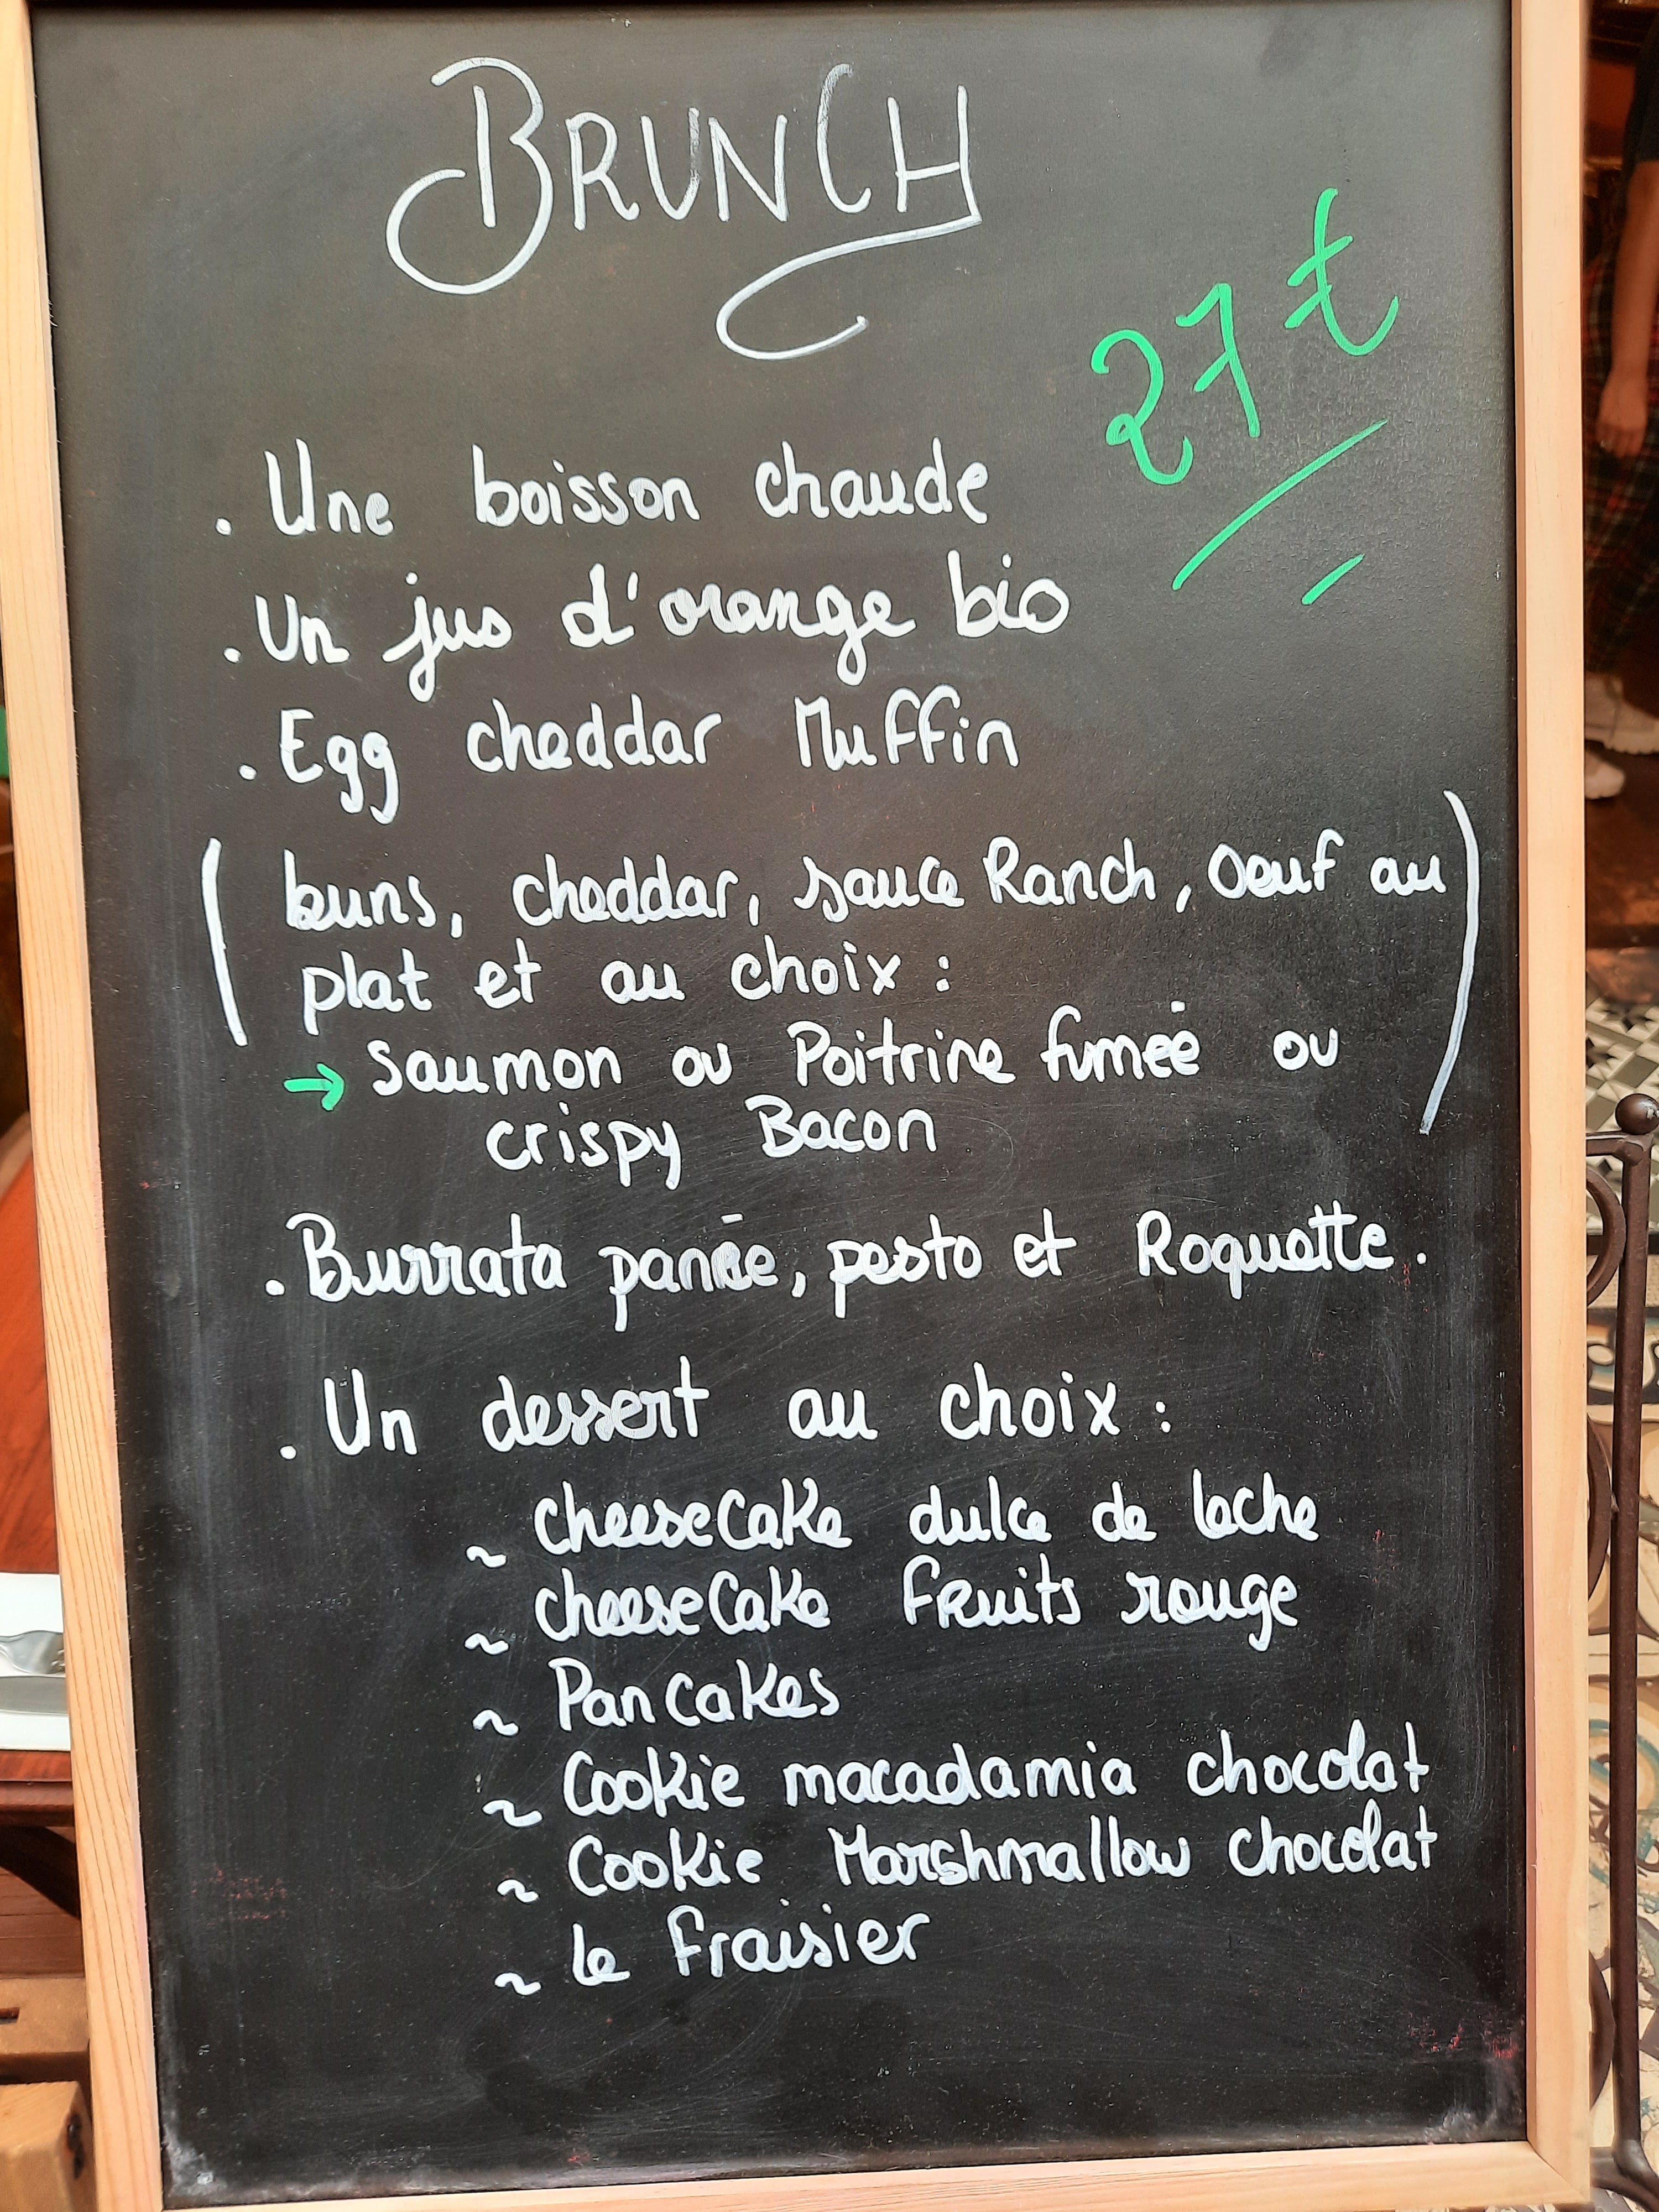 BRUNCH
27 €
. Une boisson chaude
. Un jus d'orange bio
. Egg cheddar Muffin
( buns, cheddar, sauce Ranch, Oeuf au
plat et au choix :
→ saumon ou Poitrine fumée ou
crispy Bacon )
. Burrata panée, pesto et Roquette.
. Un dessert au choix :
~ cheeseCake dulce de leche
~ cheeseCake fruits rouge
~ PanCakes
~ Cookie macadamia chocolat
~ Cookie Marshmallow chocolat
~ le fraisier